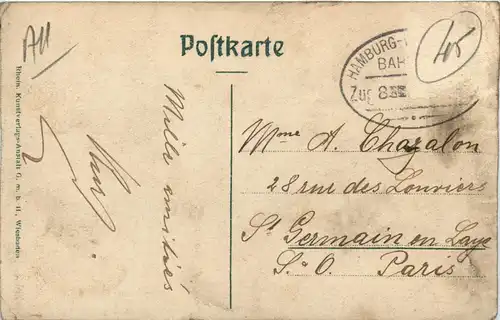 All
Postkarte
HAMBURG-
BAH
Zug 8
45
Mille amitiés
Mme A. Chazalon
28 rue des Louviers
St Germain en Laye
S. O. Paris
Rhein. Kunstverlags-Anstalt G. m. b. H., Wiesbaden